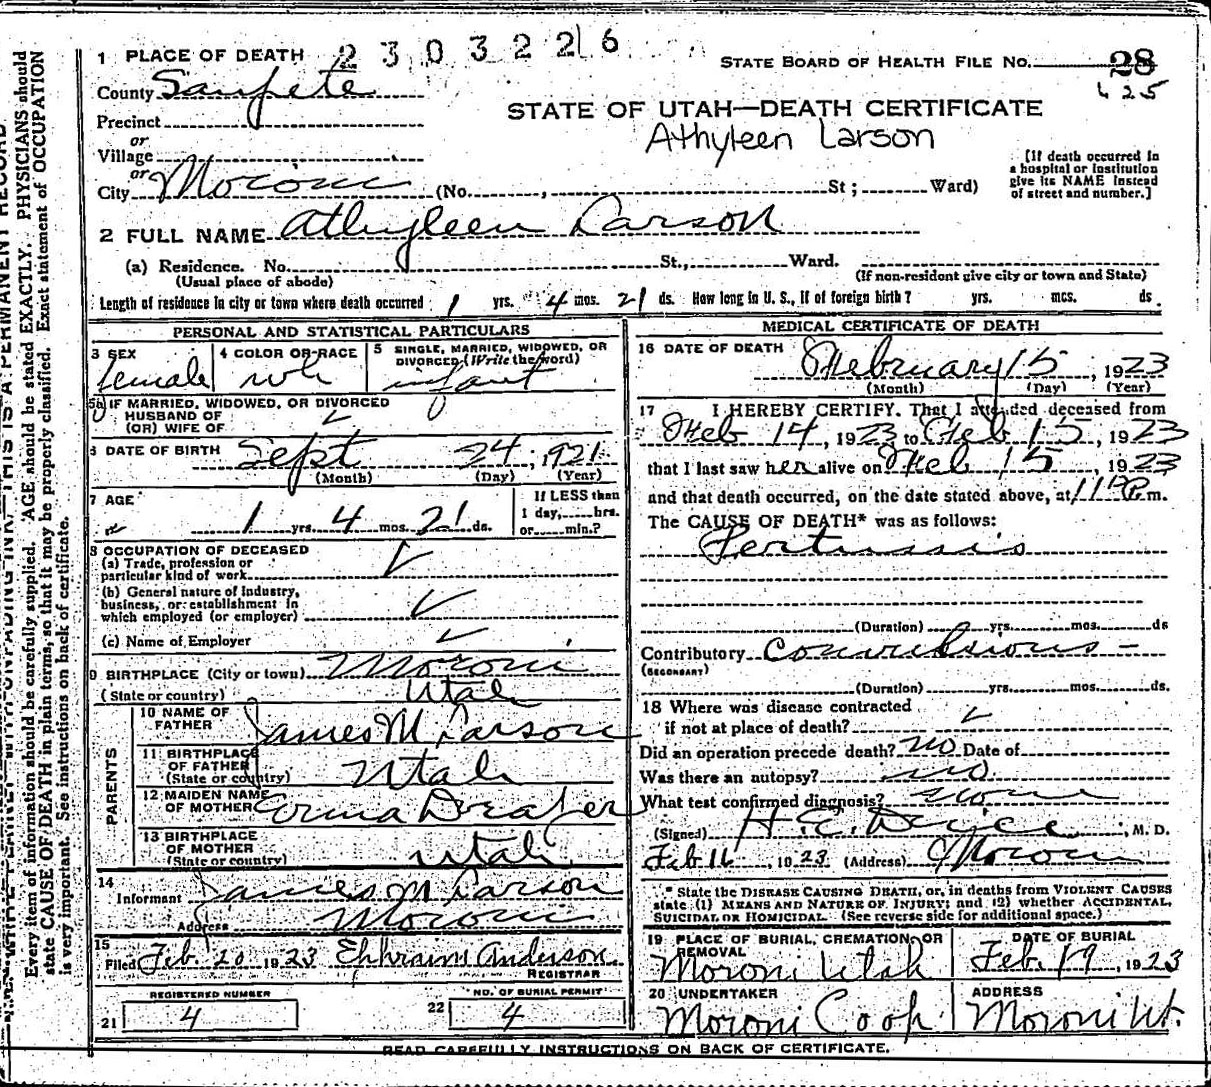 1 PLACE OF DEATH 2303226
STATE BOARD OF HEALTH FILE NO. 28
625
County Sanpete
STATE OF UTAH—DEATH CERTIFICATE
Precinct
Athyleen Larson
or
Village
or
City Moroni (No. , St; Ward)
[If death occurred in
a hospital or institution
give its NAME instead
of street and number.]
2 FULL NAME Athyleen Larson
(a) Residence. No. St., Ward.
(Usual place of abode) (If non-resident give city or town and State)
Length of residence in city or town where death occurred 1 yrs. 4 mos. 21 ds. How long in U. S., if of foreign birth? yrs. mos. ds.
PERSONAL AND STATISTICAL PARTICULARS
3 SEX 4 COLOR OR RACE 5 SINGLE, MARRIED, WIDOWED, OR
DIVORCED (Write the word)
female wh infant
5a IF MARRIED, WIDOWED, OR DIVORCED
HUSBAND OF
(OR) WIFE OF
6 DATE OF BIRTH Sept 24, 1921
(Month) (Day) (Year)
7 AGE 1 yrs. 4 mos. 21 ds.
If LESS than
1 day, hrs.
or min.?
8 OCCUPATION OF DECEASED
(a) Trade, profession or
particular kind of work
(b) General nature of Industry,
business, or establishment in
which employed (or employer)
(c) Name of Employer
9 BIRTHPLACE (City or town) Moroni
(State or country) Utah
PARENTS
10 NAME OF
FATHER James M Larson
11 BIRTHPLACE
OF FATHER
(State or country) Utah
12 MAIDEN NAME
OF MOTHER Erma Draper
13 BIRTHPLACE
OF MOTHER
(State or country) Utah
14
Informant James M Larson
Address Moroni
15
Filed Feb. 20 1923 Ephraim Anderson
REGISTRAR
REGISTERED NUMBER
21 4
NO. OF BURIAL PERMIT
22 4
MEDICAL CERTIFICATE OF DEATH
16 DATE OF DEATH
February 15, 1923
(Month) (Day) (Year)
17 I HEREBY CERTIFY. That I attended deceased from
Feb 14, 1923 to Feb 15, 1923
that I last saw her alive on Feb 15, 1923
and that death occurred, on the date stated above, at 11 P. m.
The CAUSE OF DEATH* was as follows:
Pertussis
(Duration) yrs. mos. ds
Contributory Convulsions -
(SECONDARY)
(Duration) yrs. mos. ds.
18 Where was disease contracted
if not at place of death?
Did an operation precede death? no Date of
Was there an autopsy? no
What test confirmed diagnosis? none
(Signed) H. E. , M. D.
Feb 16, 1923 (Address) Moroni
* State the DISEASE CAUSING DEATH, or, in deaths from VIOLENT CAUSES
state (1) MEANS AND NATURE OF INJURY; and (2) whether ACCIDENTAL,
SUICIDAL OR HOMICIDAL. (See reverse side for additional space.)
19 PLACE OF BURIAL, CREMATION, OR
REMOVAL
Moroni Utah
DATE OF BURIAL
Feb. 19, 1923
20 UNDERTAKER
Moroni Coop.
ADDRESS
Moroni Ut.
READ CAREFULLY INSTRUCTIONS ON BACK OF CERTIFICATE.
Every item of information should be carefully supplied. AGE should be stated EXACTLY. PHYSICIANS should
state CAUSE OF DEATH in plain terms, so that it may be properly classified. Exact statement of OCCUPATION
is very important. See instructions on back of certificate.